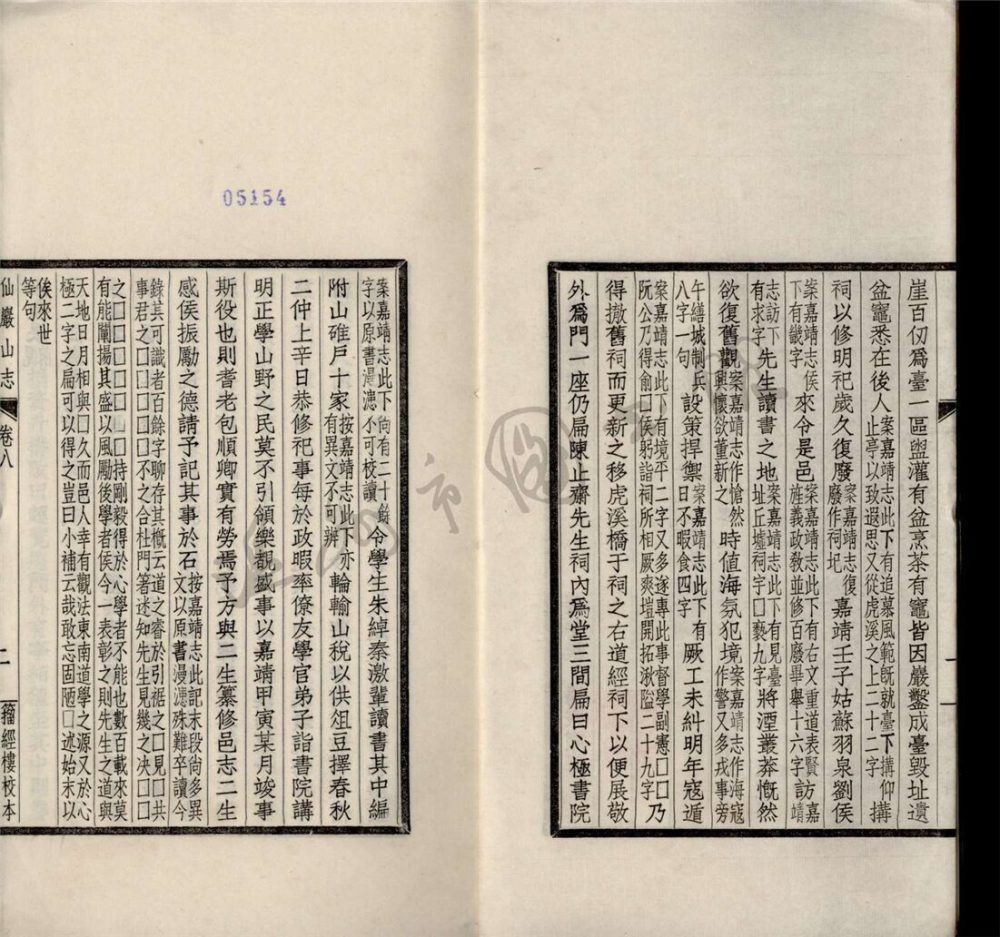 崖百仞爲臺一區盥灌有盆烹茶有竈皆因巖鑿成臺毀址遺
盆竈悉在後人案嘉靖志此下有追慕風範旣就臺下搆仰止亭以致遐思又從虎溪之上二十二字搆
祠以修明祀歲久復廢案嘉靖志復廢作祠圮嘉靖壬子姑蘇羽泉劉侯
案嘉靖志侯下有畿字來令是邑案嘉靖志此下有右文重道表賢旌義政敎並修百廢畢舉十六字訪嘉靖
志訪下有求字先生讀書之地案嘉靖志此下有見臺址丘墟祠字□褻九字將湮叢莽慨然
欲復舊觀案嘉靖志作愴然興懷欲董新之時值海氛犯境案嘉靖志作海寇作警又多戎事旁
午繕城制兵八字一句設策捍禦案嘉靖志此下有日不暇食四字厥工未糾明年寇遁
案嘉靖志此下有境平二字又多遂專此事督學副憲□□阮公乃得兪□侯躬詣祠所相厥爽塏開拓湫隘二十九字乃
得撤舊祠而更新之移虎溪橋于祠之右道經祠下以便展敬
外爲門一座仍扁陳止齋先生祠內爲堂三間扁曰心極書院
05154
案嘉靖志此下尙有二十餘字以原書漫漶不可校讀令學生朱綽秦激輩讀書其中編
附山碓戶十家按嘉靖志此下亦有異文不可辨輪輸山稅以供俎豆擇春秋
二仲上辛日恭修祀事每於政暇率僚友學官弟子詣書院講
明正學山野之民莫不引領樂覩盛事以嘉靖甲寅某月竣事
斯役也則耆老包順卿實有勞焉予方與二生纂修邑志二生
感侯振勵之德請予記其事於石按嘉靖志此記末段尙多異文以原書漫漶殊難卒讀今
錄其可識者百餘字聊存其槪云道之睿於引裾之□見□共事君之□□□□不之合杜門箸述知先生見幾之决□□
之□□□□□□持剛毅得於心學者不能也數百載來莫有能闡揚其盛以風勵後學者侯今一表彰之則先生之道與
天地日月相與□久而邑人幸有觀法東南道學之源又於心極二字之扁可以得之豈曰小補云哉敢忘固陋□述始末以
俟來世等句
仙巖山志
卷八
二
籀經樓校本